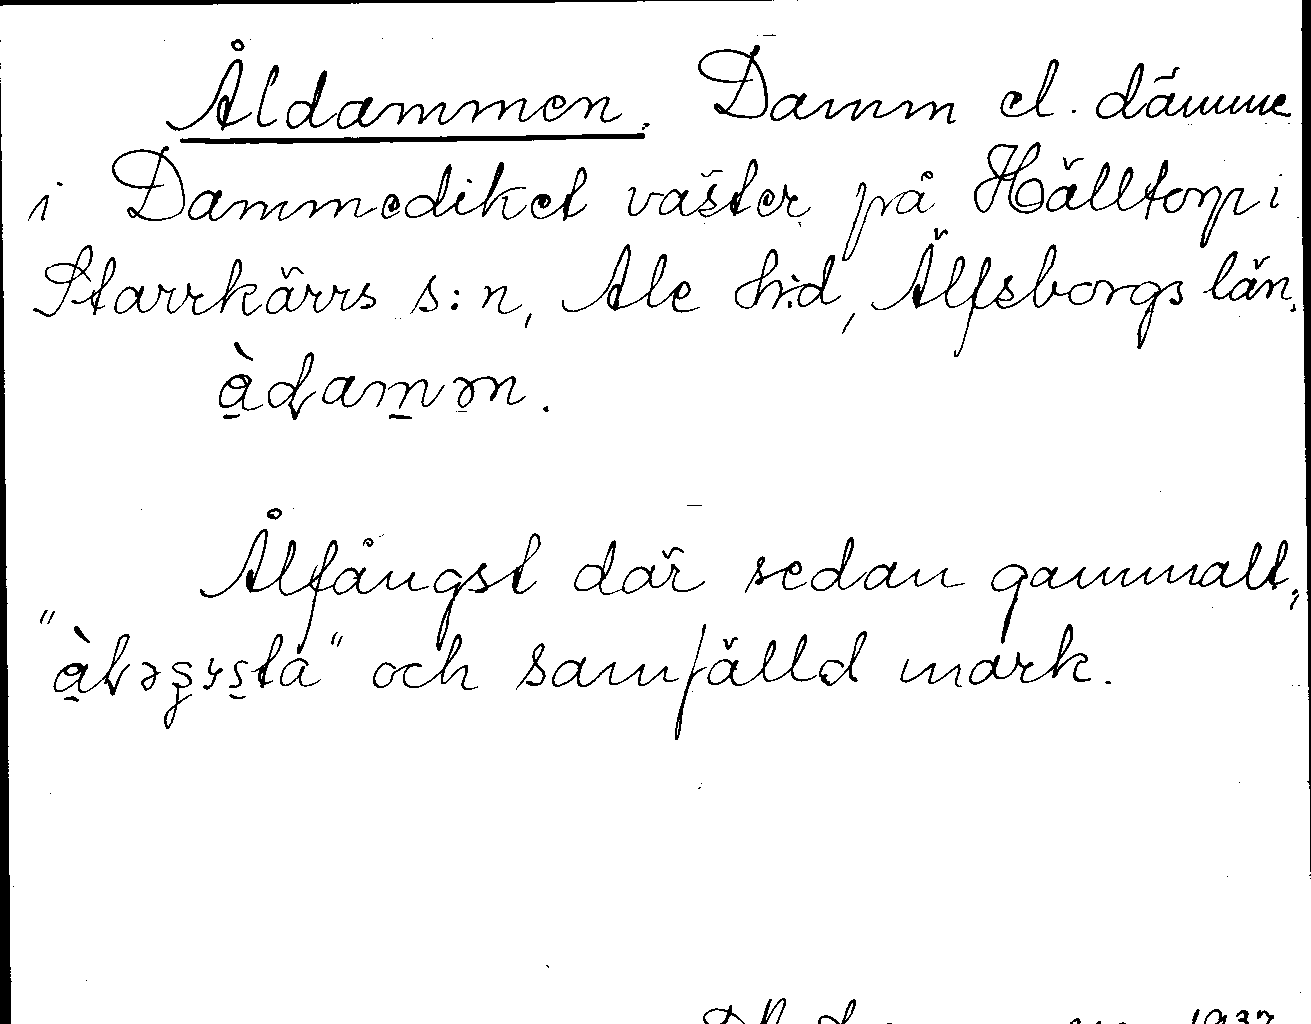 Åldammen. Damm el. dämme
i Dammediket väster på Hälltorp i
Starrkärrs s:n, Ale h:d, Älfsborgs län.
Ålfångst där sedan gammalt,
och samfälld mark.
1932